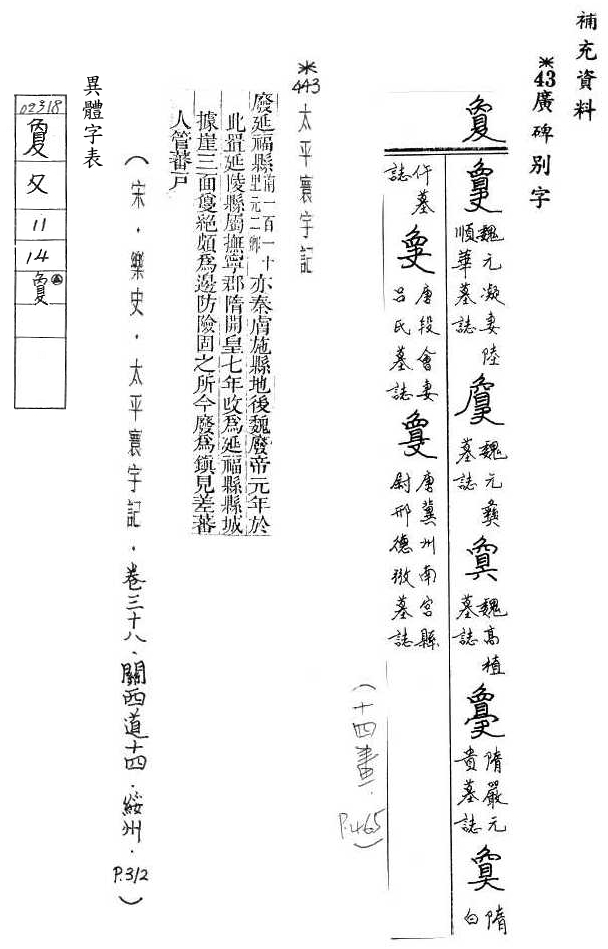 補充資料
※43廣碑別字
敻
魏元凝妻陸順華墓誌
魏元彝墓誌
魏高植墓誌
隋嚴元貴墓誌
隋白
仵墓誌
唐段會妻呂氏墓誌
唐冀州南宮縣尉邢德墓誌
(十四畫．P.465)
※443太平寰宇記
廢延福縣南一百一十里元二鄉亦秦膚施縣地後魏廢帝元年於
此置延陵縣屬撫寧郡隋開皇七年改爲延福縣縣城
據崖三面敻絕頗爲邊防險固之所今廢爲鎮見差蕃
人管蕃戶
(宋．樂史．太平寰宇記．卷三十八．關西道十四．綏州．P.312)
異體字表
02318
敻
夊
11
14
敻